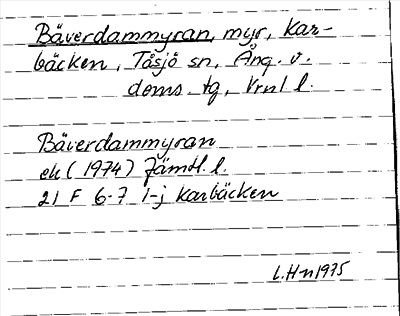 Bäverdammyran, myr, Kar-
bäcken, Tåsjö sn, Ång. v.
doms. tg, Vrnl l.
Bäverdammyran
ek (1974) Jämtl. l.
21 F 6-7 i-j Karbäcken
L.H-n 1975